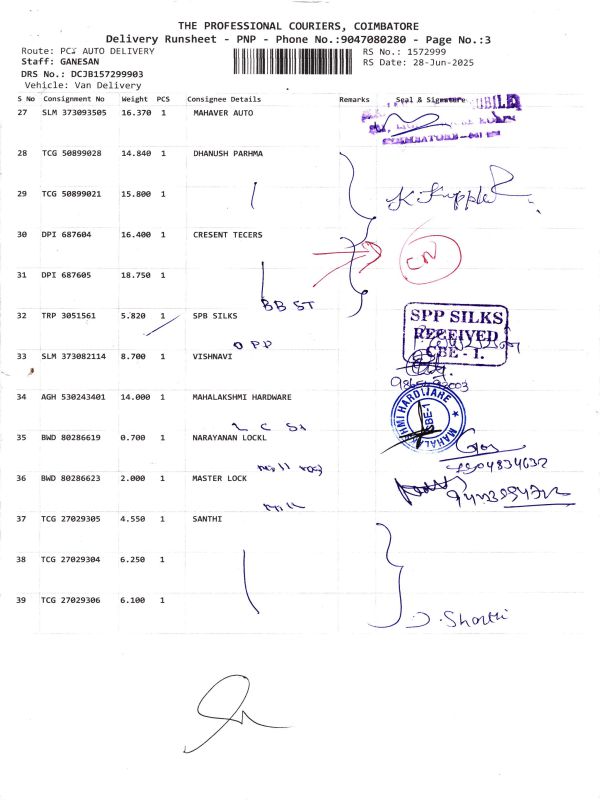 THE PROFESSIONAL COURIERS, COIMBATORE
Delivery Runsheet - PNP - Phone No.:9047080280 - Page No.:3
Route: PCX AUTO DELIVERY RS No.: 1572999
Staff: GANESAN RS Date: 28-Jun-2025
DRS No.: DCJB157299903
Vehicle: Van Delivery
S No Consignment No Weight PCS Consignee Details Remarks Seal & Signature
27 SLM 373093505 16.370 1 MAHAVER AUTO
28 TCG 50899028 14.840 1 DHANUSH PARHMA
29 TCG 50899021 15.800 1
30 DPI 687604 16.400 1 CRESENT TECERS
CN
31 DPI 687605 18.750 1
BB ST
32 TRP 3051561 5.820 1 SPB SILKS
SPP SILKS
RECEIVED
CBE - 1.
OPP
33 SLM 373082114 8.700 1 VISHNAVI
34 AGH 530243401 14.000 1 MAHALAKSHMI HARDWARE
MAHALAKSHMI HARDWARE
CBE-1
35 BWD 80286619 0.700 1 NARAYANAN LOCKL
36 BWD 80286623 2.000 1 MASTER LOCK
37 TCG 27029305 4.550 1 SANTHI
38 TCG 27029304 6.250 1
39 TCG 27029306 6.100 1